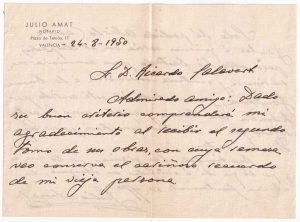 JULIO AMAT
NOTARIO
Plaza de Tetuán, 17
VALENCIA 24-8-1950
S. D. Ricardo
Admirado amigo: Dado
su buen criterio comprenderá mi
agradecimiento al recibir el segundo
tomo de sus obras, con cuya
veo conserva el cariñoso recuerdo
de mi vieja persona